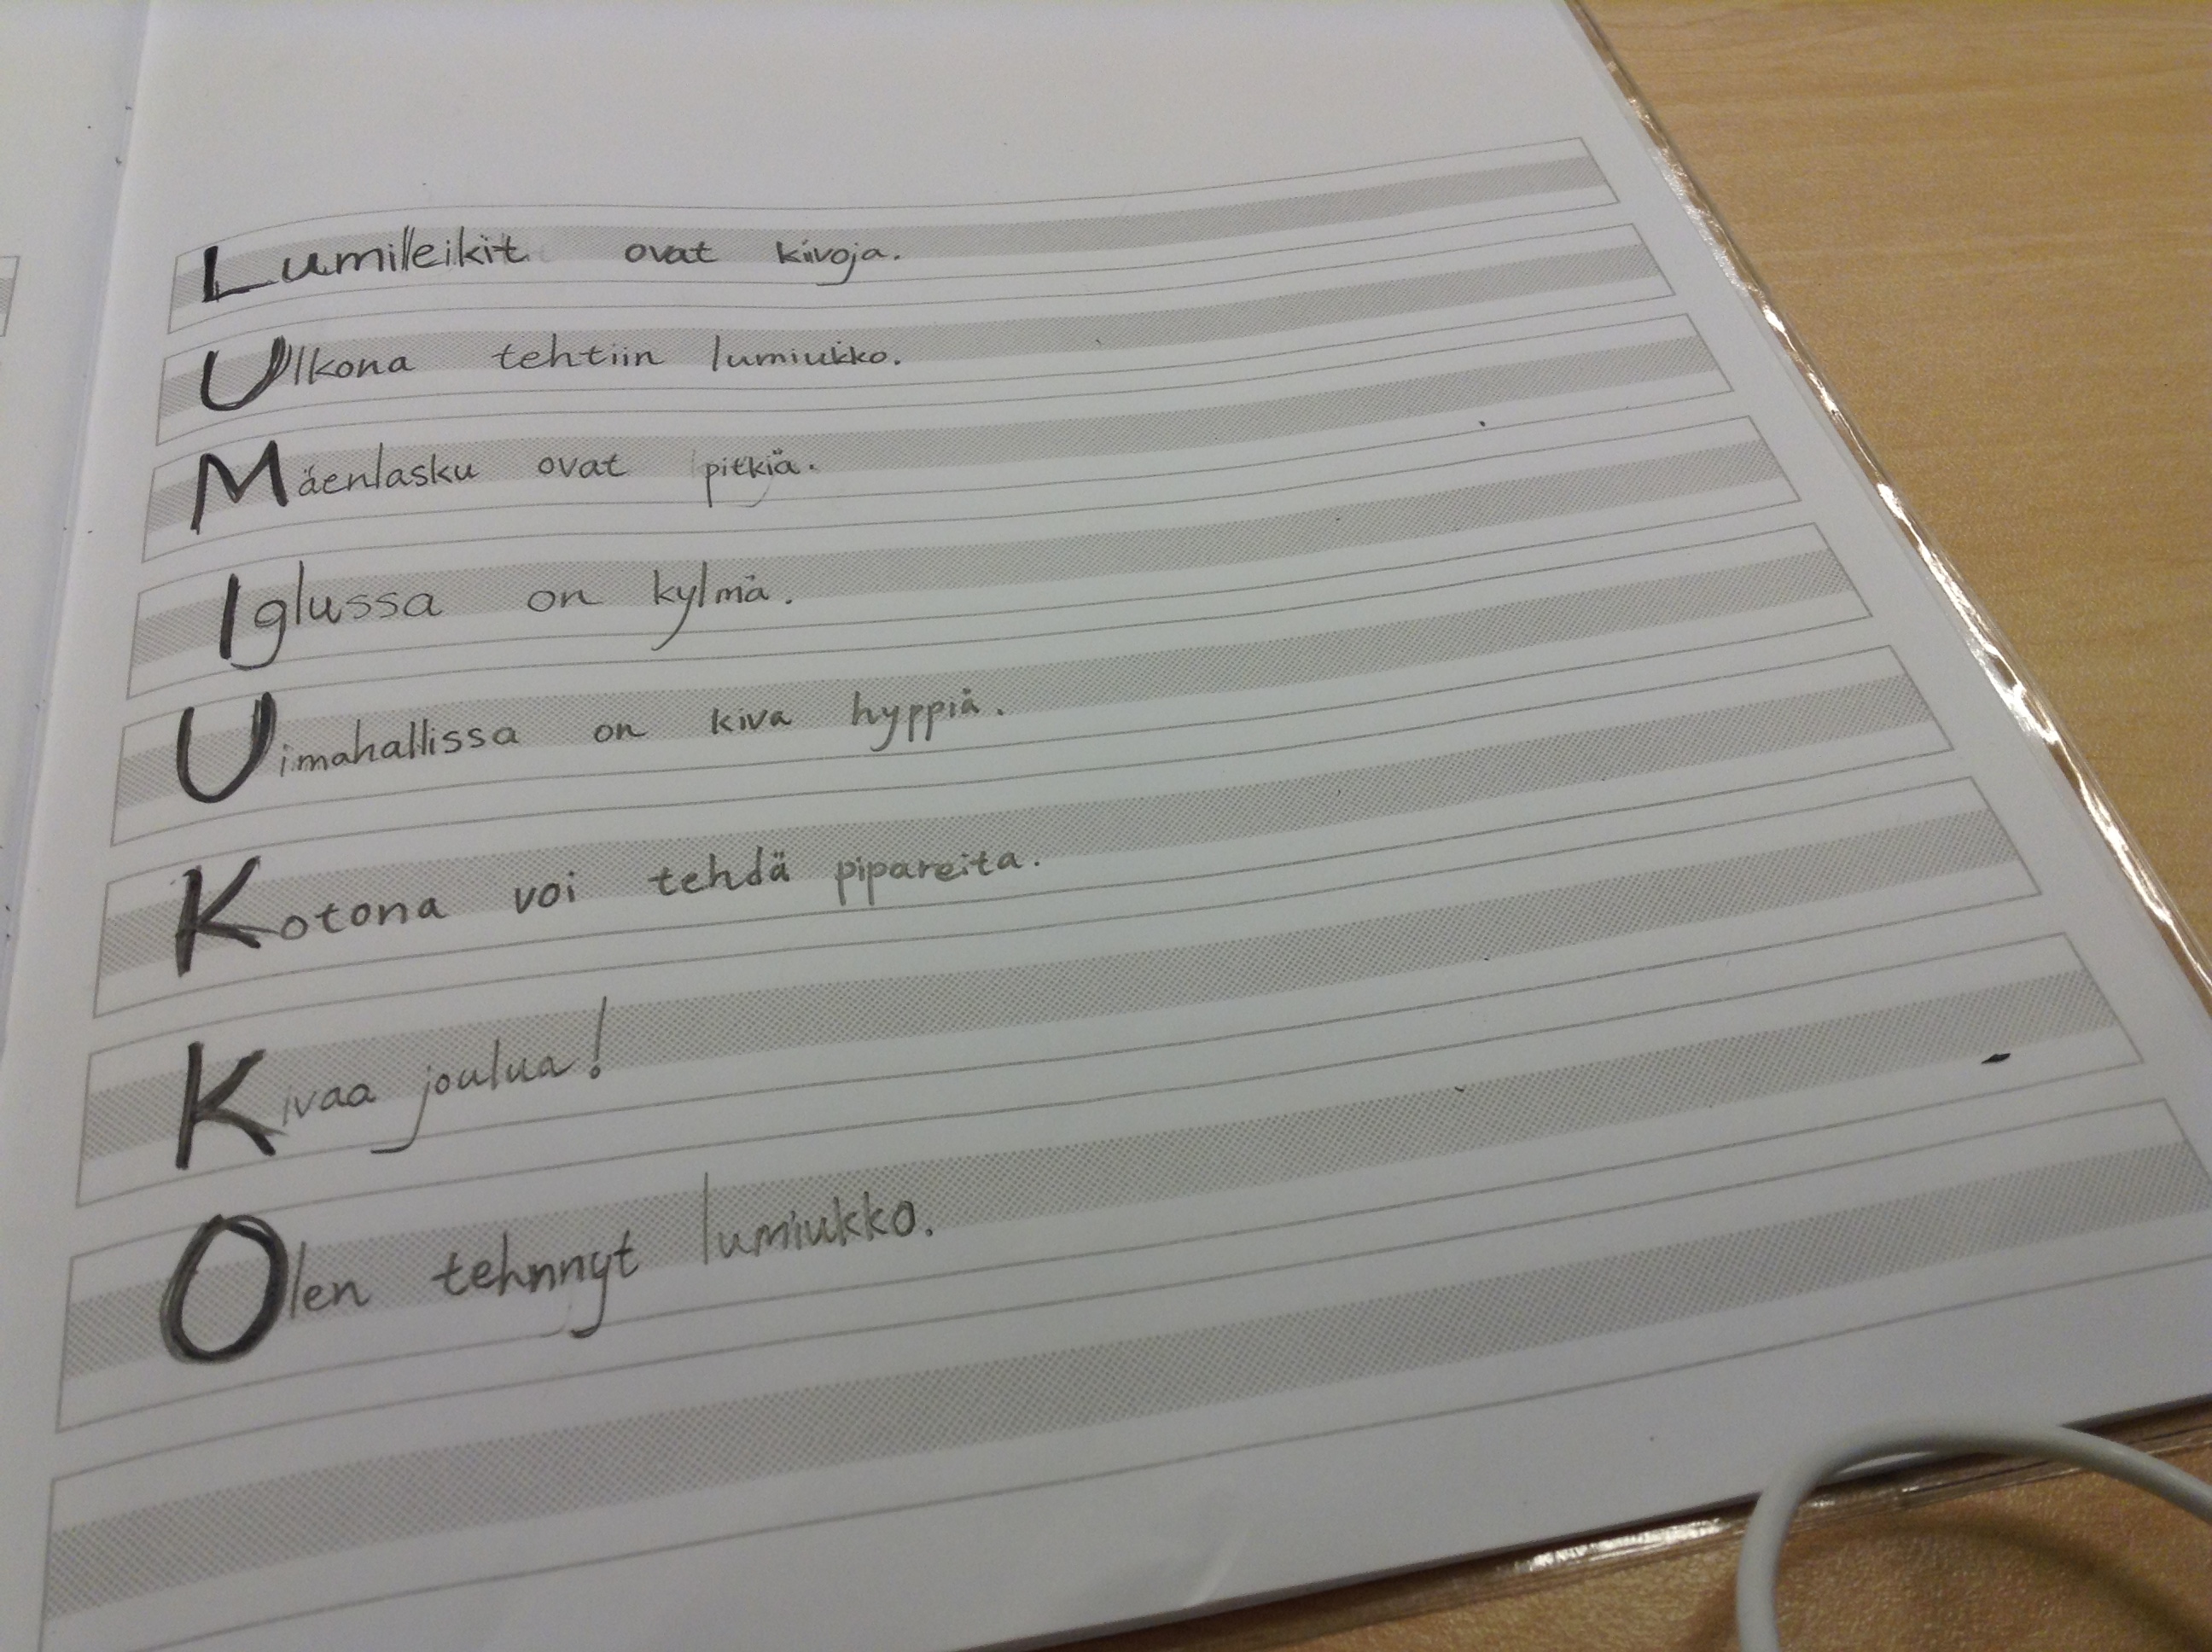 Lumileikit ovat kivoja.
Ulkona tehtiin lumiukko.
Mäenlasku ovat pitkiä.
Iglussa on kylmä.
Uimahallissa on kiva hyppiä.
Kotona voi tehdä pipareita.
Kivaa joulua!
Olen tehnnyt lumiukko.